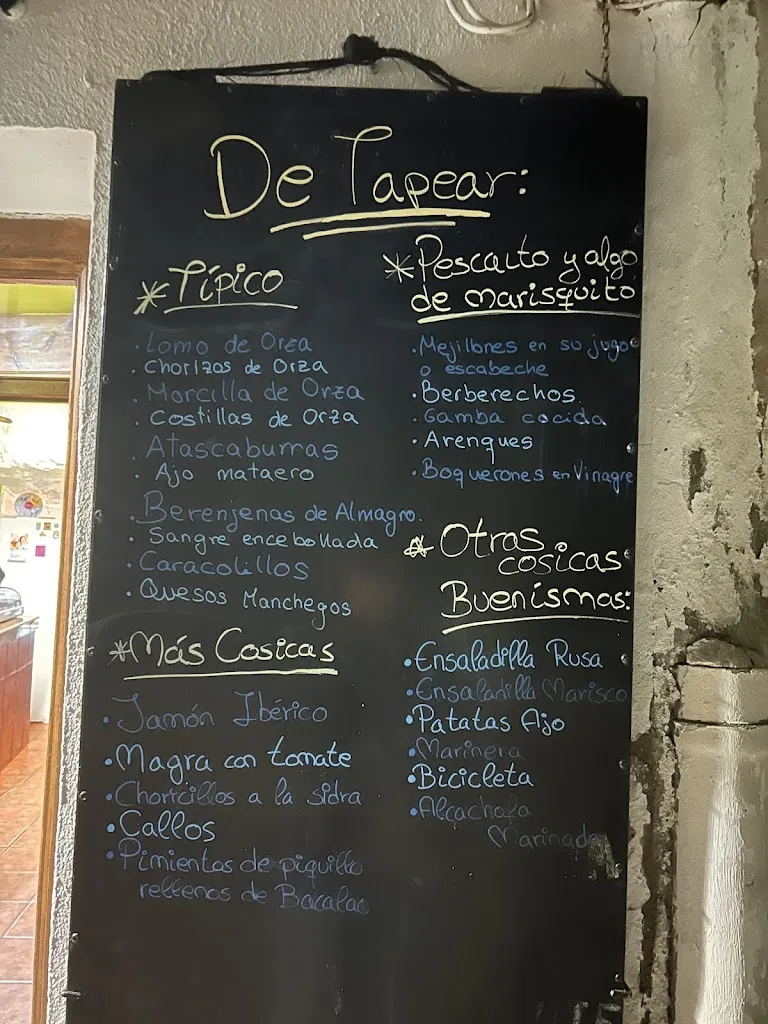 De Tapear:
*Típico
. Lomo de Orza
. Chorizos de Orza
. Morcilla de Orza
. Costillas de Orza
. Atascaburras
. Ajo mataero
. Berenjenas de Almagro.
. Sangre encebollada
. Caracolillos
. Quesos Manchegos
*Más Cosicas
. Jamón Ibérico
. Magra con tomate
. Choricillos a la sidra
. Callos
. Pimientos de piquillo
rellenos de Bacalao
*Pescaito y algo
de marisquito
. Mejillones en su jugo
o escabeche
. Berberechos.
. Gamba cocida
. Arenques
. Boquerones en Vinagre
* Otras
cosicas
Buenísmas:
. Ensaladilla Rusa
. Ensaladilla Marisco
. Patatas Ajo
. Marinera
. Bicicleta
. Alcachofa
Marinada